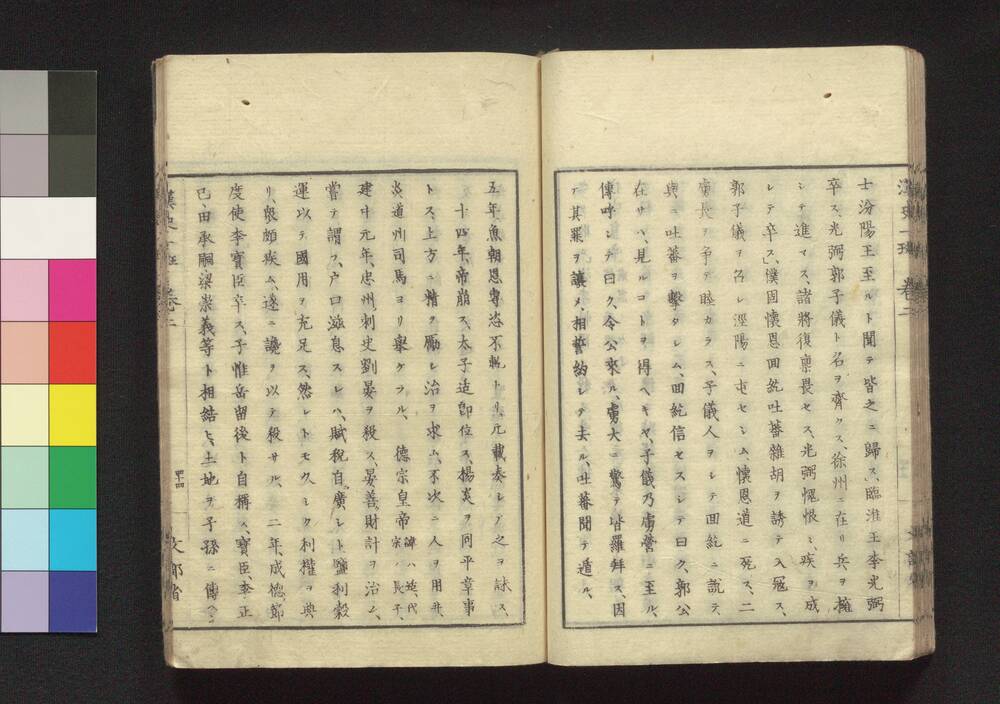 士汾陽王至ルト聞テ皆之ニ歸ス、臨淮王李光弼
卒ス、光弼郭子儀ト名ヲ齊クス、徐州ニ在リ兵ヲ擁
シテ進マス、諸將復稟畏セス、光弼愧恨シ、疾ヲ成
レテ卒ス、僕固懷恩回紇吐蕃雜胡ヲ誘テ入冦ス、
郭子儀ヲ召レ涇陽ニ屯セシム、懷恩道ニ死ス、二
虜長ヲ爭テ睦カラス、子儀人ヲレテ回紇ニ說テ、
與ニ吐蕃ヲ擊タレム、回紇信セスレテ曰ク、郭公
在サハ、見ルコトヲ得ヘキヤ、子儀乃虜營ニ至ル、
傳呼シテ曰ク、令公來ル、虜大ニ驚テ皆羅拜ス、因
テ其罪ヲ讓メ、相誓約レテ去ル、吐蕃聞テ遁ル、
五年、魚朝恩專恣不軌ナリ、元載奏レテ之ヲ誅ス、
十四年、帝崩ス、太子适卽位ス、楊炎ヲ同平章事
トス、上方ニ精ヲ厲レ治ヲ求ム、不次ニ人ヲ用井、
炎道州司馬ヨリ擧ケラル、 德宗皇帝 諱ハ适、代宗ノ長子、
建中元年、忠州ノ刺史劉晏ヲ殺ス、晏善ク財計ヲ治ム、
嘗テ謂フ、戶口滋息スレハ、賦稅自ラ廣レト、鹽利穀
運以テ國用ヲ充足ス、然レトモ久ミク利權ヲ典
リ、衆頗疾ム、遂ニ讒ヲ以テ殺サル、 二年、成德節
度使李寶臣卒ス、子惟岳留後ト自稱ス、寶臣、李正
已、田承嗣、梁崇義等ト相結ヒ、土地ヲ子孫ニ傳ヘン
漢史一班 卷二
四十四
文部省